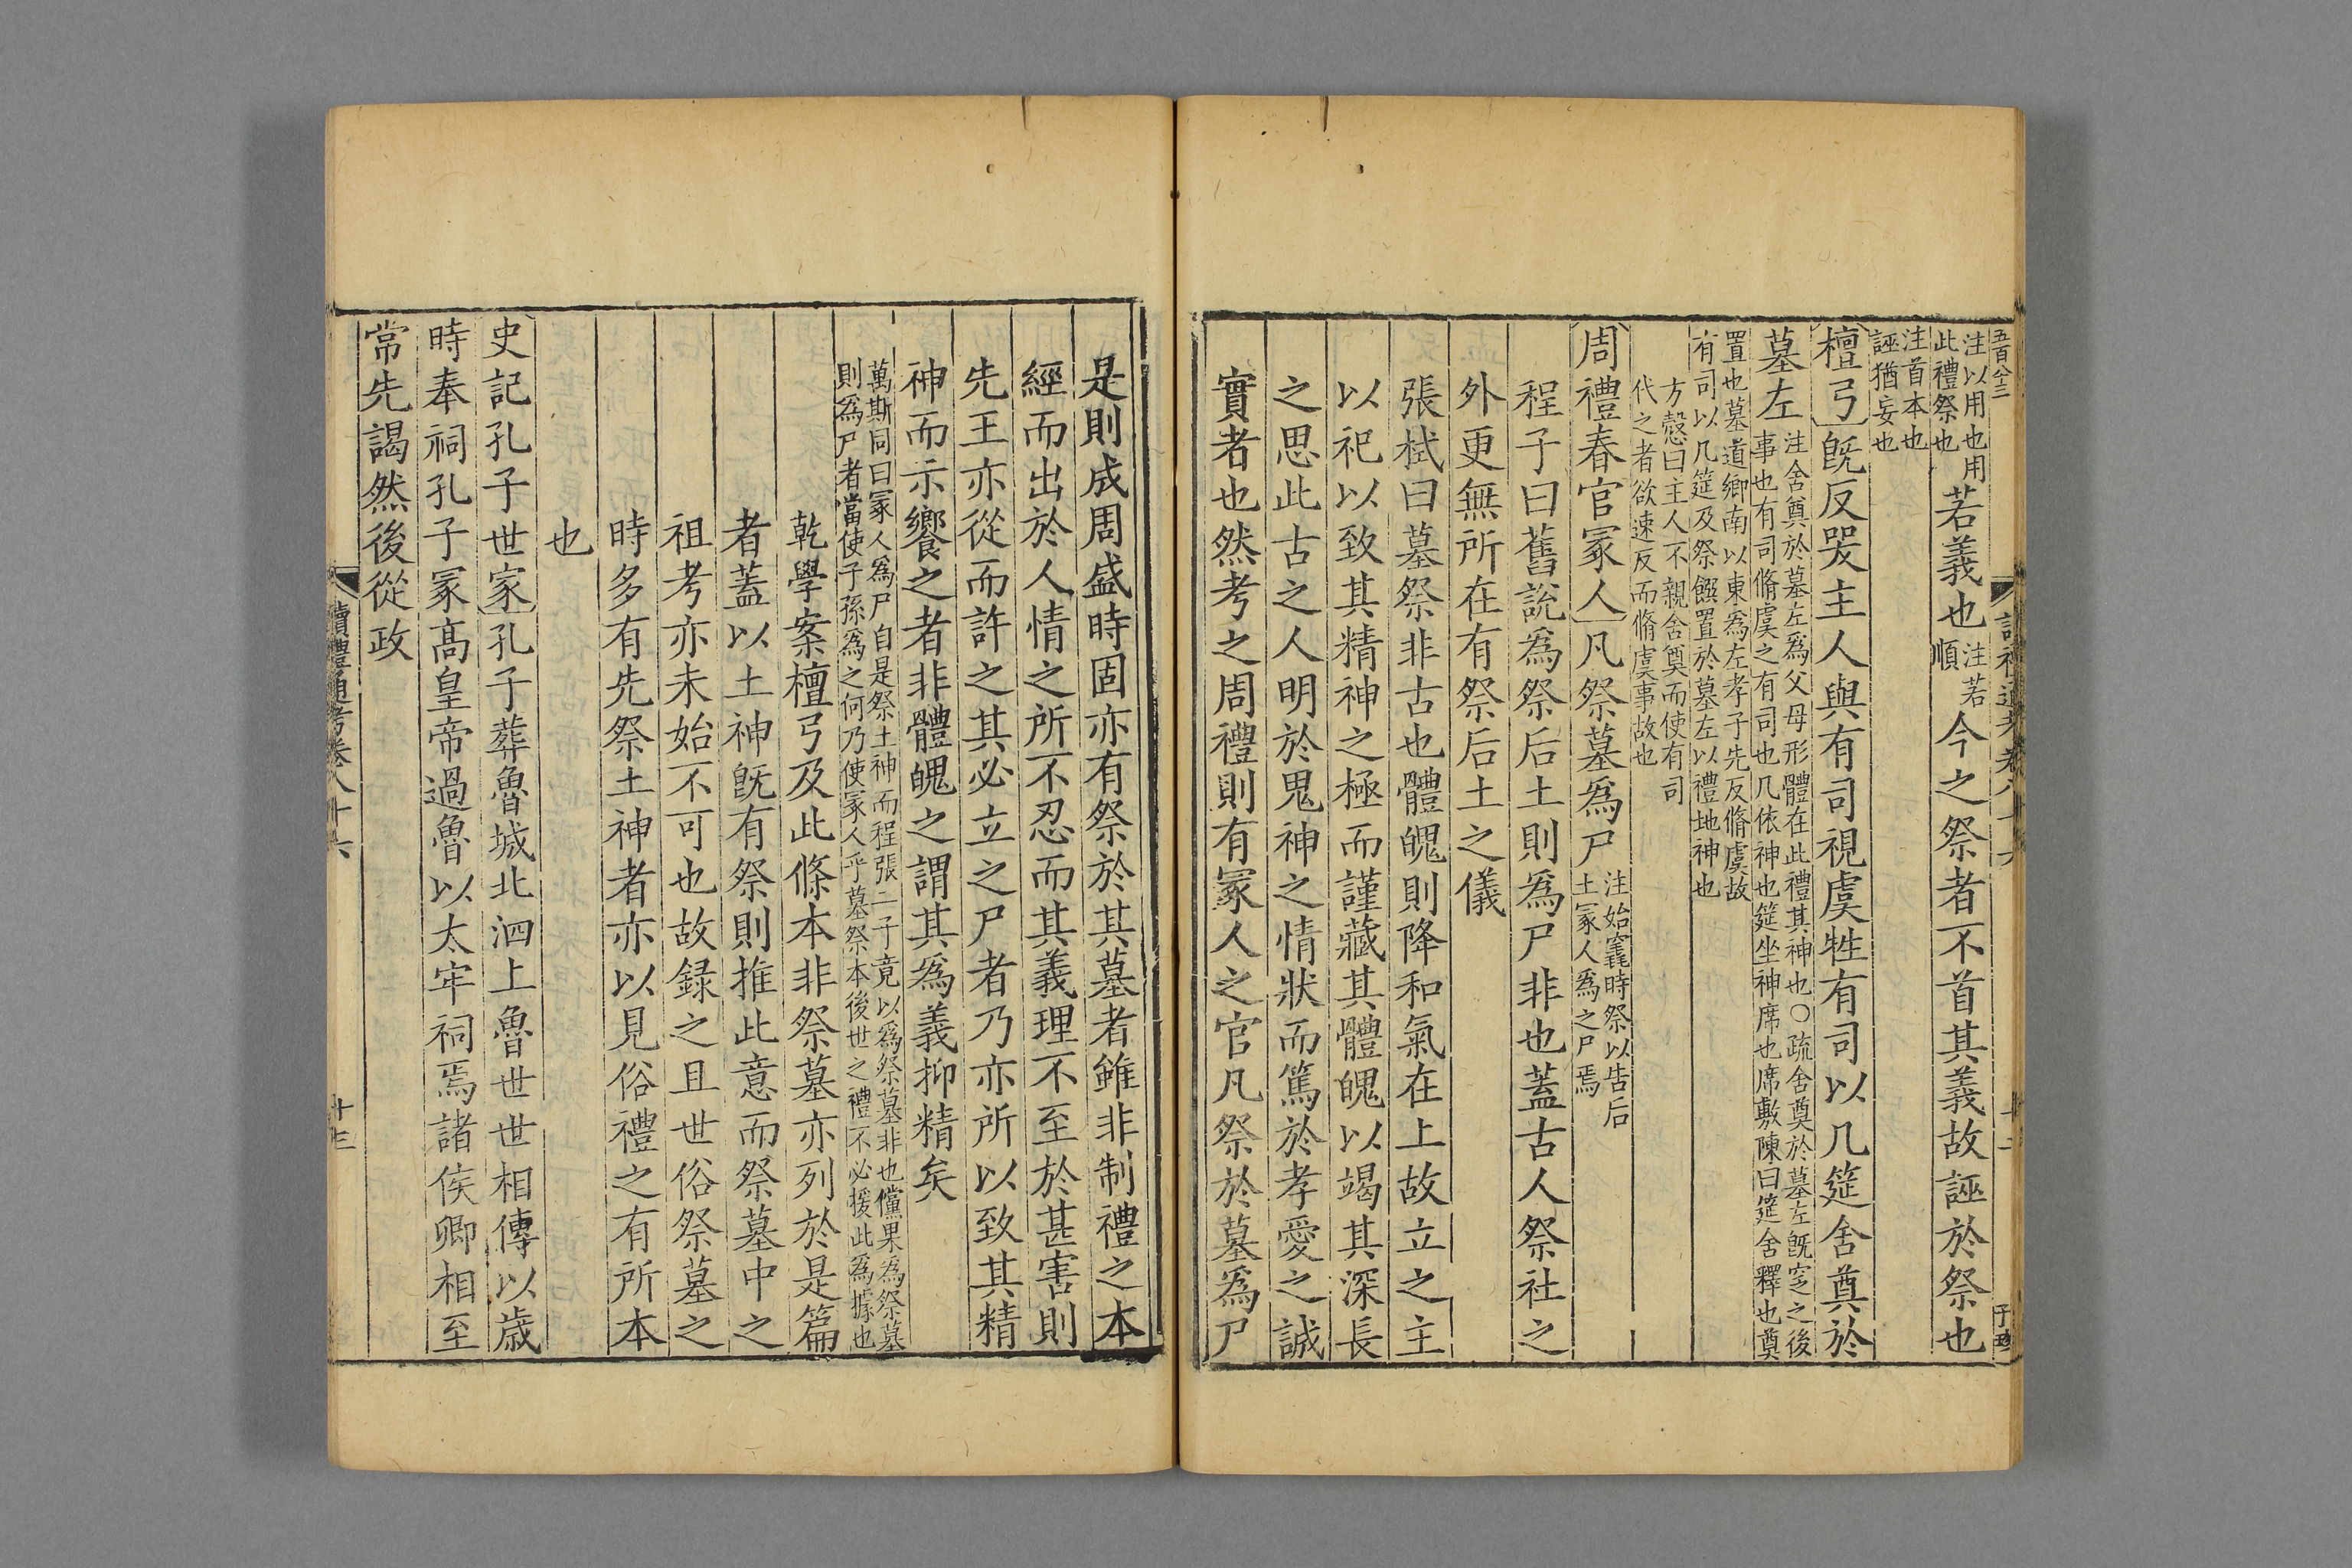 五百八十三
讀禮通考卷八十六
十二
子珍
注以用也用
此禮祭也
若義也
注若
順
今之祭者不首其義故誣於祭也
注首本也
誣猶妄也
檀弓既反哭主人與有司視虞牲有司以几筵舍奠於
墓左
注舍奠於墓左為父母形體在此禮其神也○疏舍奠於墓左既窆之後
事也有司脩虞之有司也几依神也筵坐神席也席敷陳曰筵舍釋也奠
置也墓道鄉南以東為左孝子先反脩虞故
有司以几筵及祭饌置於墓左以禮地神也
方慤曰主人不親舍奠而使有司
代之者欲速反而脩虞事故也
周禮春官冢人凡祭墓為尸
注始竁時祭以告后
土冢人為之尸焉
程子曰舊說為祭后土則為尸非也蓋古人祭社之
外更無所在有祭后土之儀
張栻曰墓祭非古也體魄則降和氣在上故立之主
以祀以致其精神之極而謹藏其體魄以竭其深長
之思此古之人明於鬼神之情狀而篤於孝愛之誠
實者也然考之周禮則有冢人之官凡祭於墓為尸
是則成周盛時固亦有祭於其墓者雖非制禮之本
經而出於人情之所不忍而其義理不至於甚害則
先王亦從而許之其必立之尸者乃亦所以致其精
神而示饗之者非體魄之謂其為義抑精矣
萬斯同曰冢人為尸自是祭土神而程張二子竟以為祭墓非也儻果為祭墓
則為尸者當使子孫為之何乃使冢人乎墓祭本後世之禮不必援此為據也
乾學案檀弓及此條本非祭墓亦列於是篇
者蓋以土神既有祭則推此意而祭墓中之
祖考亦未始不可也故録之且世俗祭墓之
時多有先祭土神者亦以見俗禮之有所本
也
史記孔子世家孔子葬魯城北泗上魯世世相傳以歲
時奉祠孔子冢高皇帝過魯以太牢祠焉諸侯卿相至
常先謁然後從政
讀禮通考卷八十六
十三